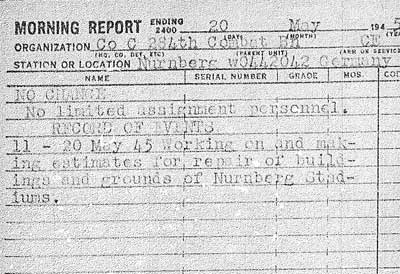 MORNING REPORT ENDING 2400 20 May 1945
(DAY) (MONTH)
ORGANIZATION Co C 284th Combat Bn CE
(HQ, CO, DET, ETC) (PARENT UNIT) (ARM OR SERVICE)
STATION OR LOCATION Nurnberg w0442042 Germany
NAME SERIAL NUMBER GRADE MOS. COD
NO CHANGE
No limited assignment personnel.
RECORD OF EVENTS
11 - 20 May 45 Working on and mak-
ing estimates for repair of build-
ings and grounds of Nurnberg Stad-
iums.